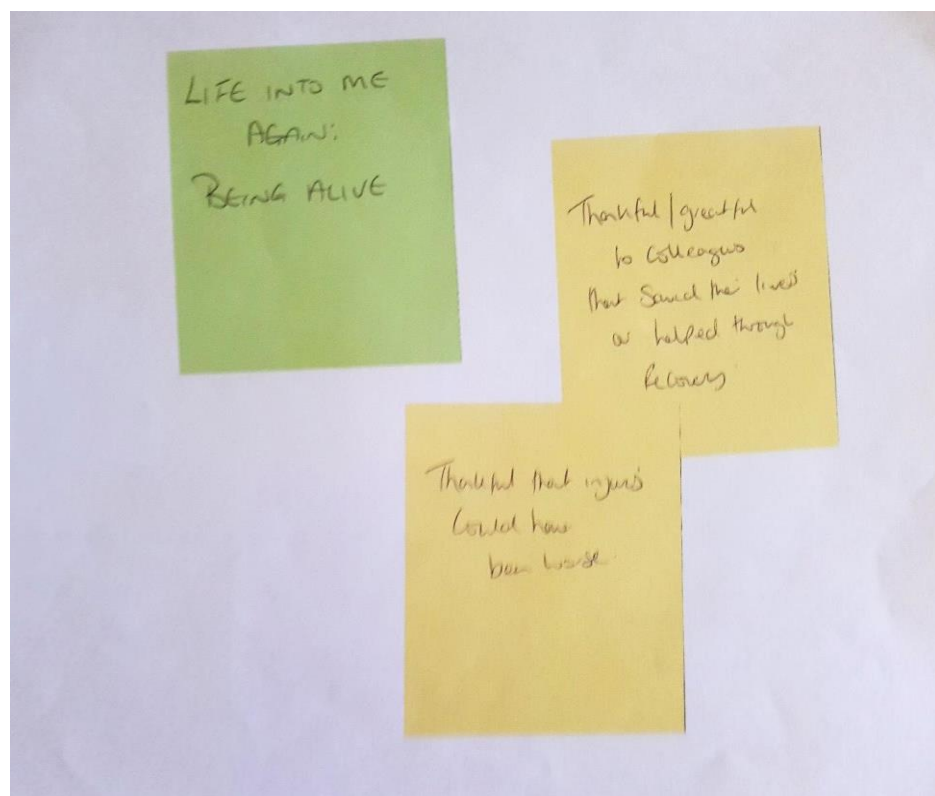 LIFE INTO ME
AGAIN:
BEING ALIVE
Thankful/greatful
to Colleagues
that Saved their live's
or helped through
Recovery
Thankful that injuries
Could have
been worse